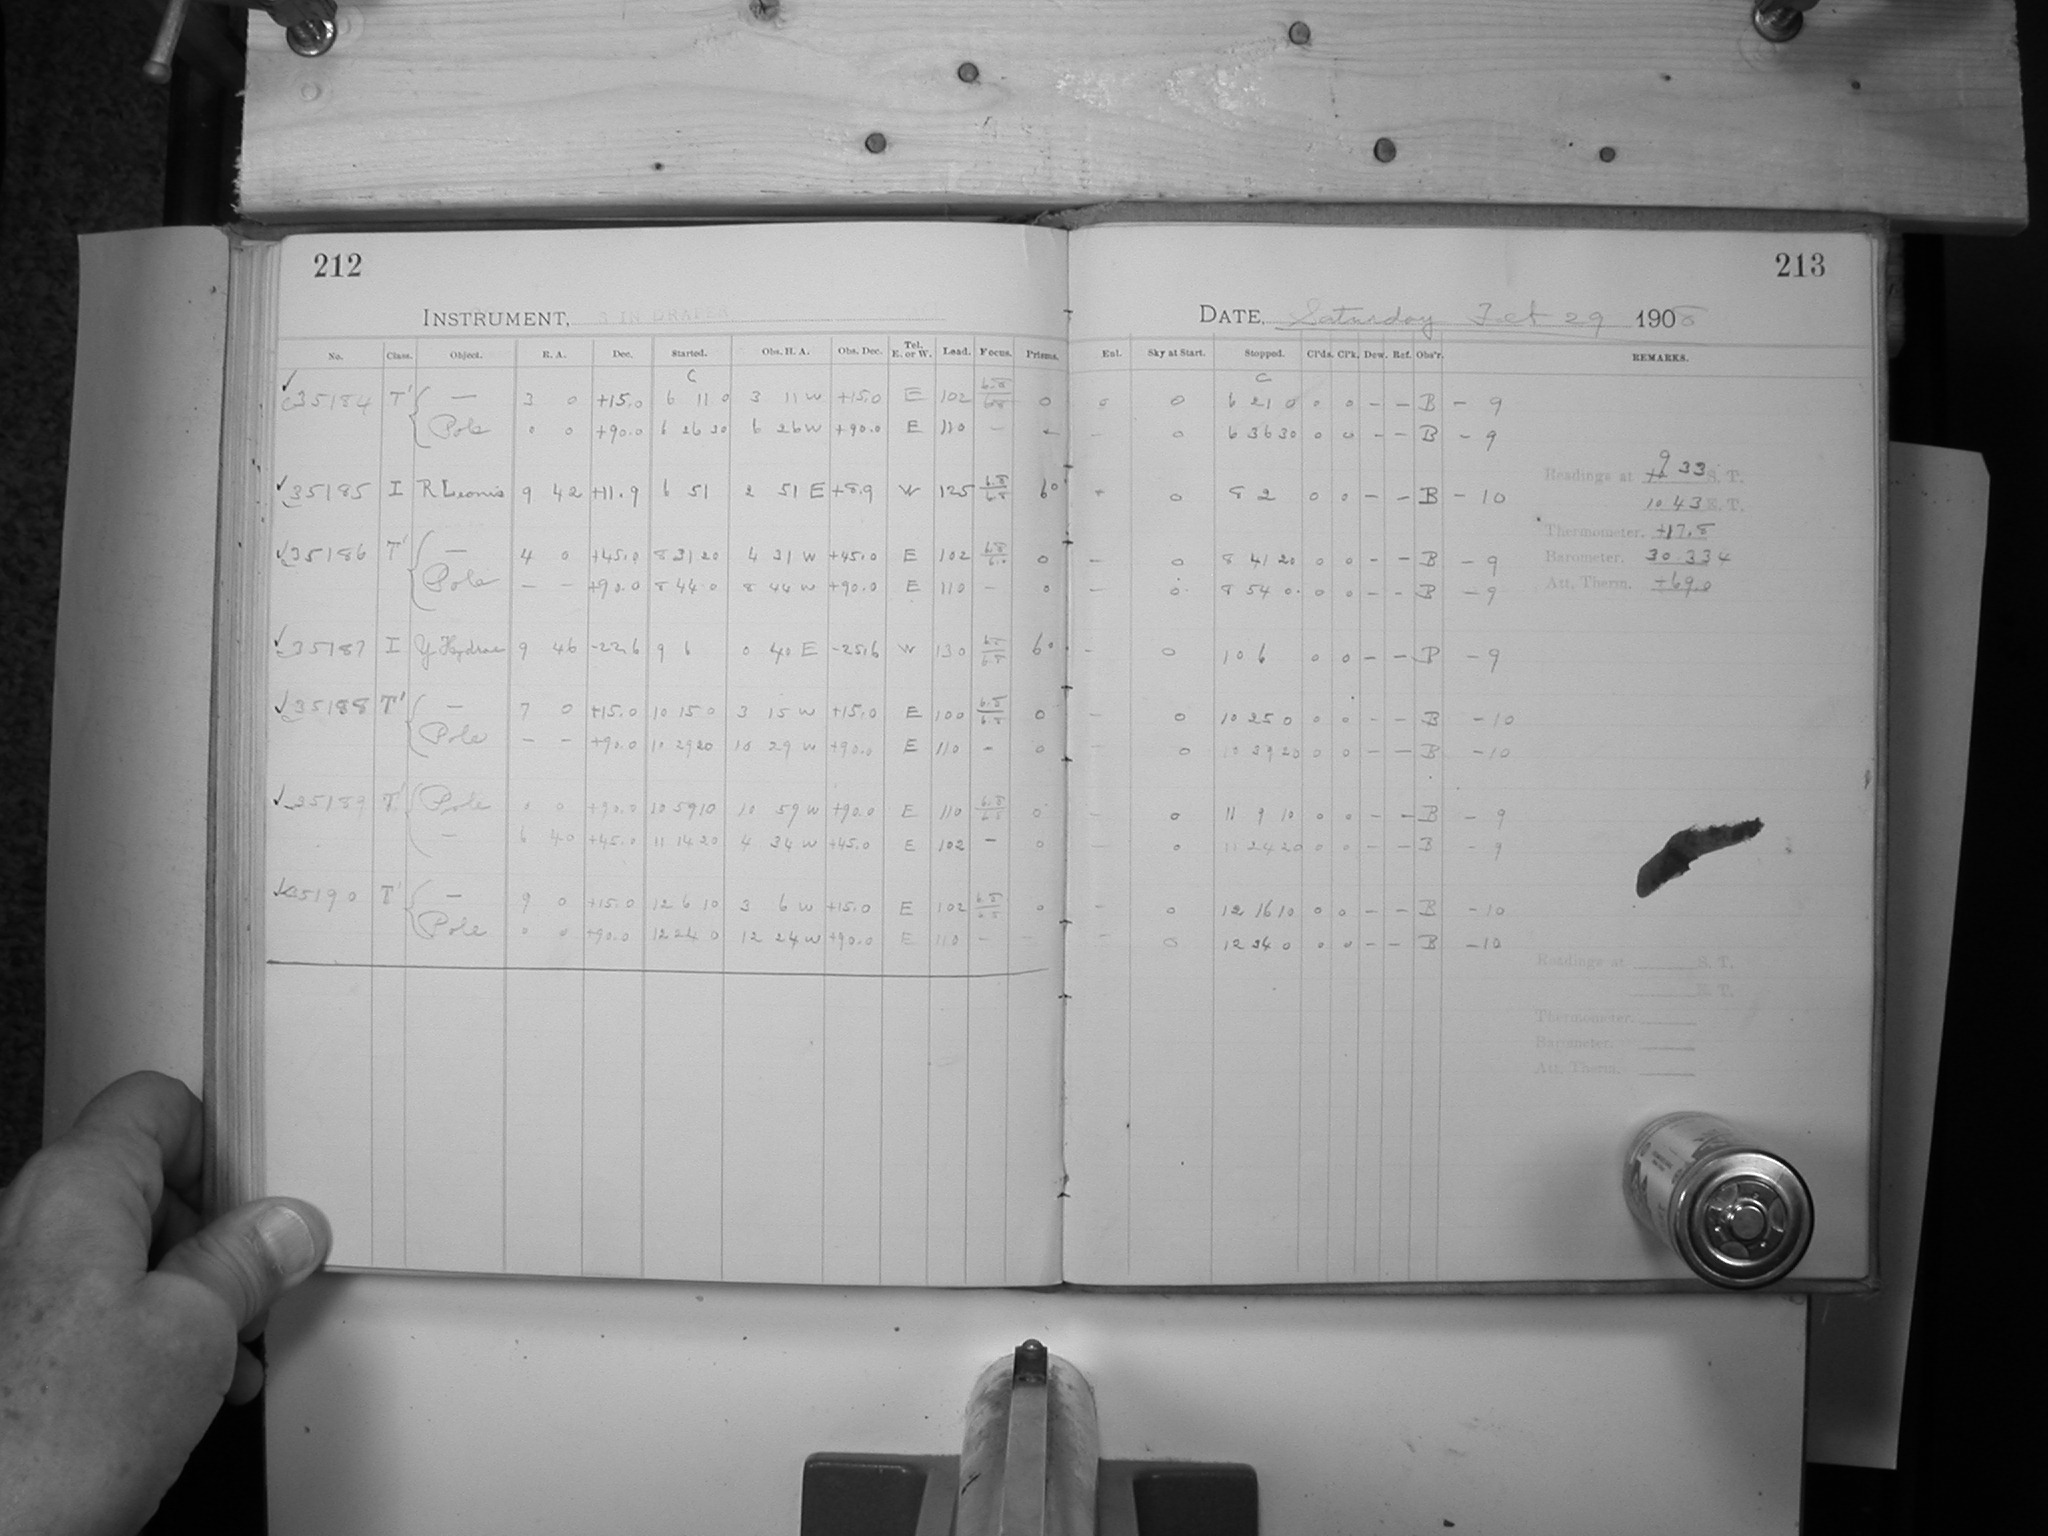 212
213
INSTRUMENT, 8 IN DRAPER
DATE, Saturday Feb 29 1908
No. Class. Object. R. A. Dec. Started. Obs. H. A. Obs. Dec. Tel. E. or W. Lead. Focus. Prisms. Enl. Sky at Start. Stopped. Cl'ds. Cl'k. Dew. Ref. Obs'r. REMARKS.
C C
35184 T' — 3 0 +15.0 6 11 0 3 11 W +15.0 E 102 0 0 0 6 21 0 0 0 – – B – 9
Pole 0 0 +90.0 6 26 30 6 26 W +90.0 E 110 – – – 0 6 36 30 0 0 – – B – 9
Readings at 9 33 S. T.
35185 I R Leonis 9 42 +11.9 6 51 2 51 E +8.9 W 125 6.8/6.8 60 0 8 2 0 0 – – B – 10
10 43 E. T.
Thermometer. +17.8
35186 T' — 4 0 +45.0 8 31 20 4 31 W +45.0 E 102 0 – 0 8 41 20 0 0 – – B – 9
Barometer. 30.334
Pole – – +90.0 8 44 0 8 44 W +90.0 E 110 – 0 – 0 8 54 0 0 0 – – B – 9
Att. Therm. +69.0
35187 I Y Hydrae 9 46 -22.6 9 6 0 40 E -25.6 W 130 60 – 0 10 6 0 0 – – B – 9
35188 T' — 7 0 +15.0 10 15 0 3 15 W +15.0 E 100 6.8/6.8 0 – 0 10 25 0 0 0 – – B – 10
Pole – – +90.0 10 29 20 10 29 W +90.0 E 110 – 0 – 0 10 39 20 0 0 – – B – 10
35189 T' Pole 0 0 +90.0 10 59 10 10 59 W +90.0 E 110 6.8/6.8 0 – 0 11 9 10 0 0 – – B – 9
— 6 40 +45.0 11 14 20 4 34 W +45.0 E 102 – 0 – 0 11 24 20 0 0 – – B – 9
35190 T' — 9 0 +15.0 12 6 10 3 6 W +15.0 E 102 0 – 0 12 16 10 0 0 – – B – 10
Pole 0 0 +90.0 12 24 0 12 24 W +90.0 E 110 – – – 0 12 34 0 0 0 – – B – 10
Readings at S. T.
E. T.
Thermometer.
Barometer.
Att. Therm.